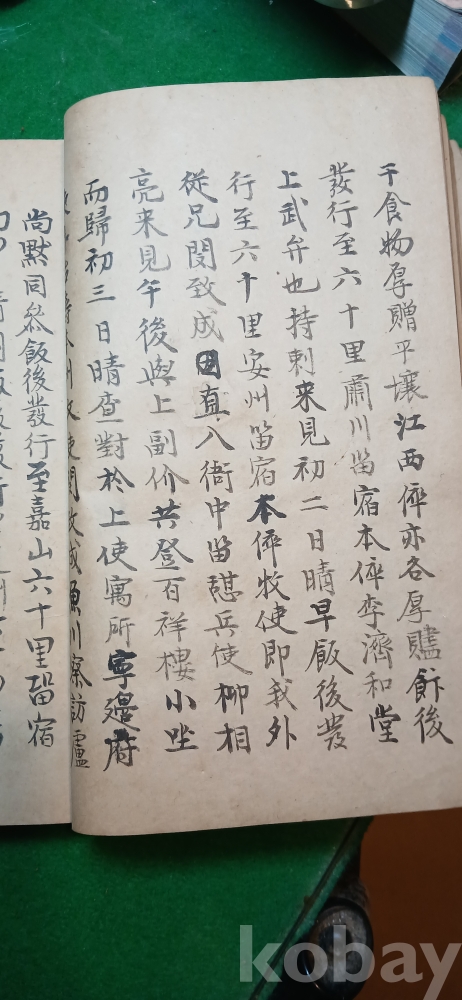 干食物厚贈平壤江西倅亦各厚贐餅後
發行至六十里肅川留宿本倅李濟和堂
上武弁也持刺来見初二日晴早飯後發
行至六十里安州留宿本倅牧使即我外
従兄閔致成田直入衙中留憇兵使柳相
亮来見午後與上副价共登百祥樓小坐
而歸初三日晴查對於上使寓所寧邊府
使閔致成魚川察訪盧
尚黙同叅飯後發行至嘉山六十里留宿
kobay